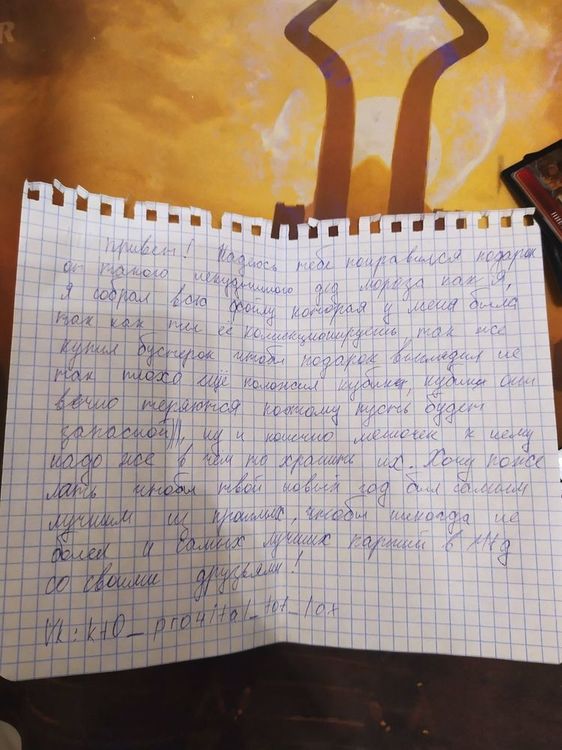 Привет! Надеюсь тебе понравился подарок
от такого никудышного дед мороза как я,
я собрал всю фойлу которая у меня была
так как ты её коллекционируешь так же
купил бустерок чтобы подарок выглядил не
так плохо ещё положил кубики, кубики они
вечно теряются поэтому пусть будет
запасной)), ну и конечно мешочек к нему
надо же в чём то хранить их. Хочу поже
лать чтобы твой новый год был самым
лучшим из прошлых, чтобы никогда не
болел и самых лучших партий в мтд
со своими друзьями!
Vk: kt0_pro4ital_tot_lox